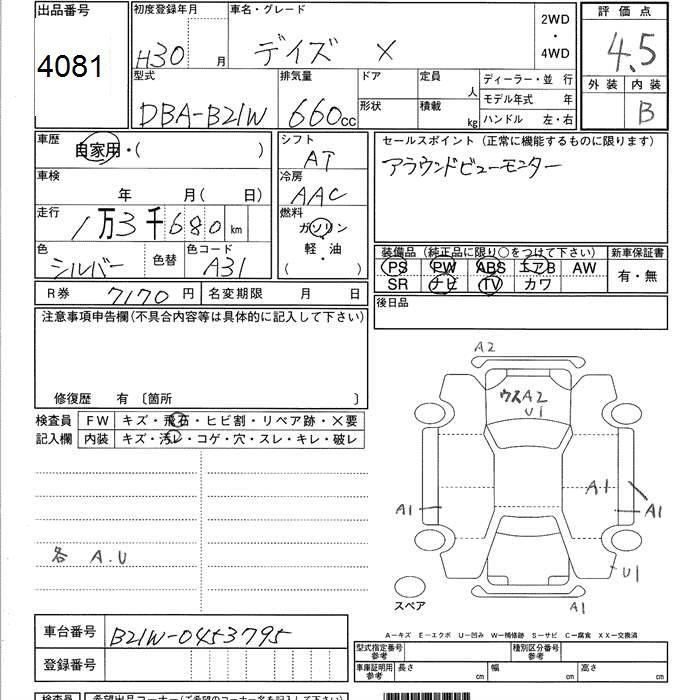 出品番号
4081
初度登録年月
H30 月
車名・グレード
デイズ X
2WD
・
4WD
評価点
4.5
外装 内装
B
型式
DBA-B21W
排気量
660cc
ドア
形状
定員 人
積載 kg
ディーラー・並 行
モデル年式 年
ハンドル 左・右
車歴
自家用・( )
車検
年 月( 日)
走行
1万3千680km
色
シルバー
色替
色コード
A31
シフト
AT
冷房
AAC
燃料
ガソリン
軽・油
( )
セールスポイント(正常に機能するものに限ります)
アラウンドビューモニター
装備品(純正品に限り○をつけて下さい)
PS PW ABS エアB AW
SR ナビ TV カワ
新車保証書
有・無
後日品
R券 7170円
名変期限 月 日
注意事項申告欄(不具合内容等は具体的に記入して下さい)
修復歴 有〔箇所 〕
検査員
記入欄
FW キズ・飛石・ヒビ割・リペア跡・×要
内装 キズ・汚レ・コゲ・穴・スレ・キレ・破レ
各 A.U
A2
ウスA2
U1
A1
A1
A1
U1
A1
スペア
A－キズ E－エクボ U－凹み W－補修跡 S－サビ C－腐食 XX－交換済
車台番号
B21W-0453795
登録番号
型式指定番号
参考
種別区分番号
参考
車庫証明用
参考
長さ cm
幅 cm
高さ cm
検査員
希望出品コーナー(ご希望のコーナー名を記入下さい)